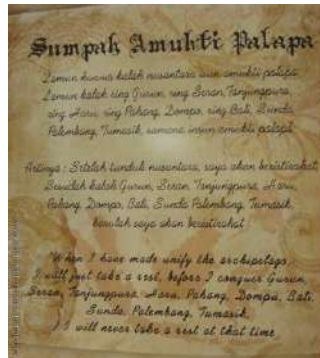 Sumpah Amukti Palapa
Lamun huwus kalah nusantara isun amukti palapa
Lamun kalah ring Gurun, ring Seran, Tanjungpura,
ring Haru, ring Pahang, Dompo, ring Bali, Sunda,
Palembang, Tumasik, samana insun amukti palapa
Artinya : Setelah tunduk nusantara, saya akan beristirahat
Sesudah kalah Gurun, Seran, Tanjungpura, Haru,
Pahang, Dompo, Bali, Sunda Palembang, Tumasik,
barulah saya akan beristirahat
When I have made unify the archipelago,
I will just take a rest, before I conquer Gurun,
Seran, Tanjungpura, Haru, Pahang, Dompu, Bali,
Sunda, Palembang, Tumasik,
I will never take a rest at that time